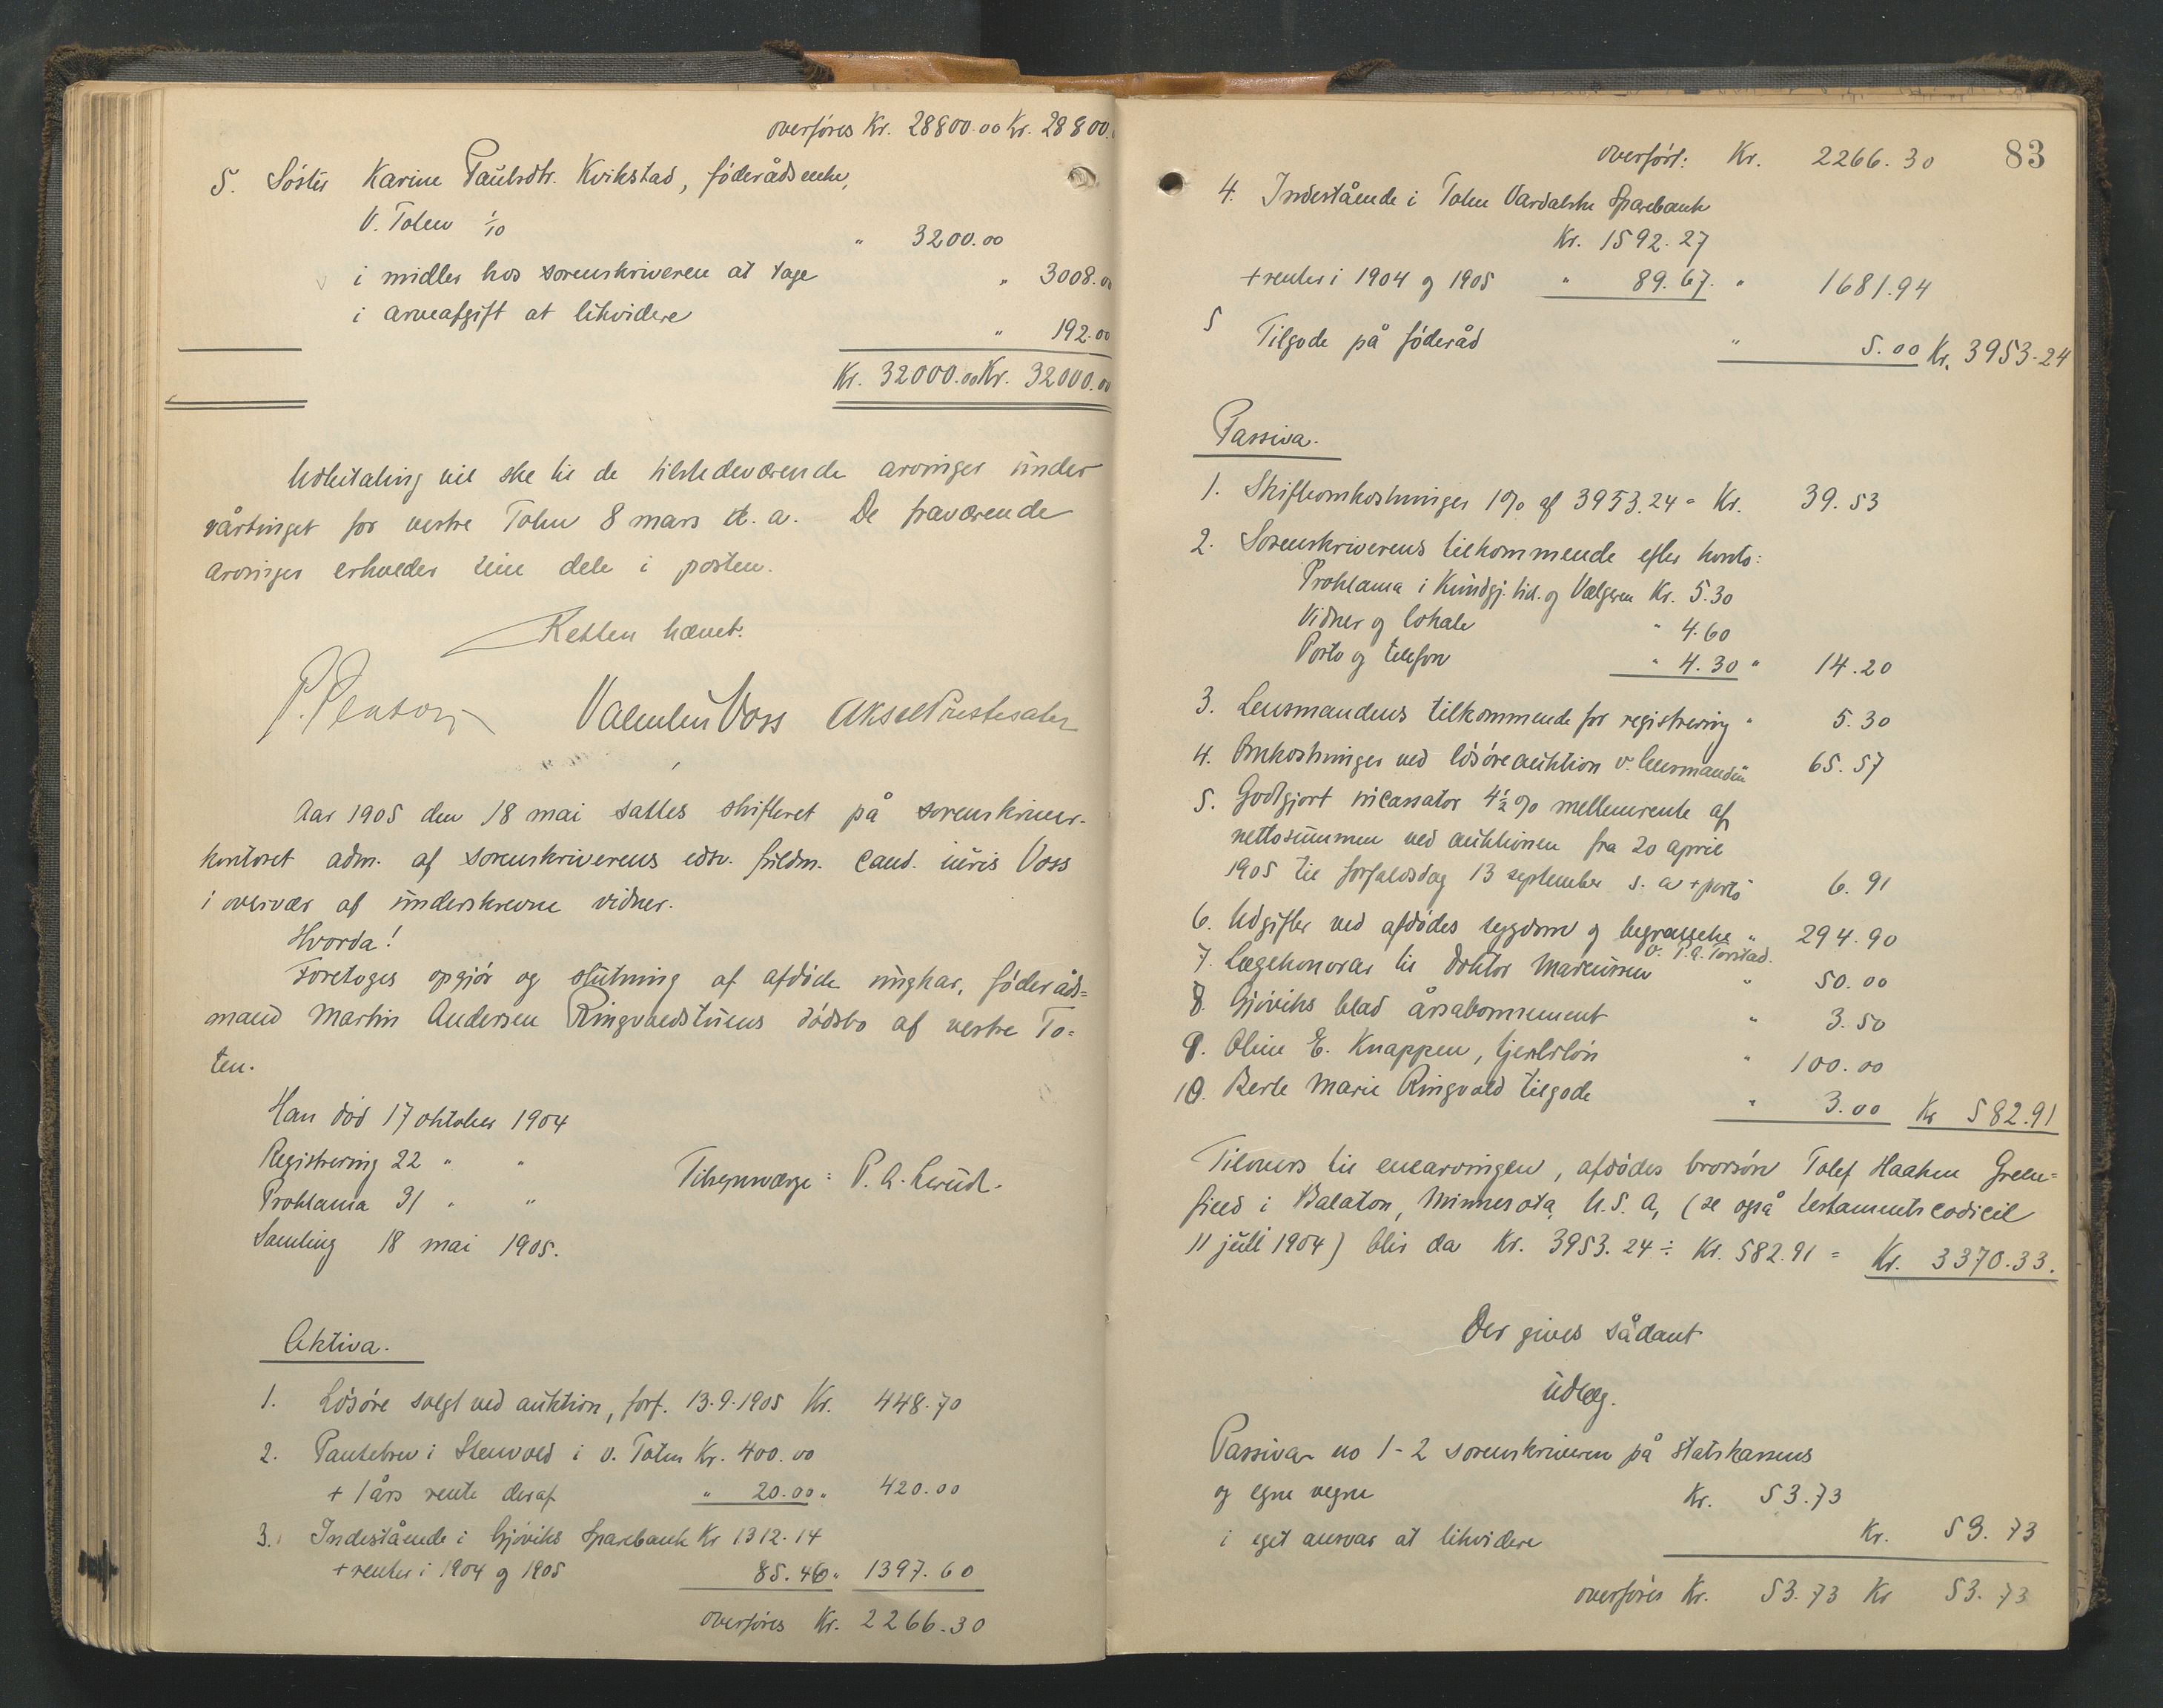 overføres Kr. 28800.00 Kr. 28800.
5. Søster Karine Paulsdtr. Kvikstad, føderådsenke,
V. Toten 1/10 " 3200.00
i midler hos sorenskriveren at tage " 3008.00
i arveafgift at likvidere " 192.00
Kr. 32000.00 Kr. 32000.00
Udbetaling vil ske til de tilstedeværende arvinger under
vårtinget for vestre Toten 8 mars d. a. De fraværende
arvinger erholder sine dele i posten.
Retten hævet.
Valentin Voss Aksel Præstesæter
Aar 1905 den 18 mai sattes skifteret på sorenskriver-
kontoret adm. af sorenskriverens edsv. fuldm. cand. juris Voss
i overvær af underskrevne vidner.
Hvorda!
Foretoges opgjør og slutning af afdøde ungkar, føderåds=
mand Martin Andersen Ringvoldstuens dødsbo af vestre To=
ten.
Han død 17 oktober 1904
Registrering 22 " "
Tilsynsværge: P. A. Lerud.
Proklama 31 " "
Samling 18 mai 1905.
Aktiva.
1. Løsøre solgt ved auktion, forf. 13.9.1905 Kr. 448.70
2. Pantebrev i Stenvold i v. Toten Kr. 400.00
+ 1 års rente deraf " 20.00 " 420.00
3. Indestående i Gjøviks Sparebank Kr 1312.14
+ renter i 1904 og 1905 85.46 " 1397.60
overføres Kr. 2266.30
83
overført: Kr. 2266.30
4. Indestående i Toten Vardalske Sparebank
Kr. 1592.27
+ renter i 1904 og 1905 " 89.67. " 1681.94
5 Tilgode på føderåd " 5.00 Kr. 3953.24
Passiva.
1. Skifteomkostninger 1% af 3953.24 = Kr. 39.53
2. Sorenskriverens tilkommende efter konto:
Proklama i Kundgj. tid. og Vælgeren Kr. 5.30
Vidner og lokale " 4.60
Porto og telefon " 4.30 " 14.20
3. Lensmandens tilkommende for registrering " 5.30
4. Omkostninger ved løsøreauktion v. lensmanden 65.57
5. Godtgjort incassator 4½% mellemrente af
nettosummen ved auktionen fra 20 april
1905 til forfaldsdag 13 september s. a + porto 6.91
6. Udgifter ved afdødes sygdom og begravelse " 294.90
v. P. A. Torstad.
7. Lægehonorar til doktor Marcussen " 50.00
8. Gjøviks blad årsabonnement " 3.50
9. Oline E. Knappen, tjenstløn " 100.00
10. Berte Marie Ringvold tilgode " 3.00 Kr 582.91
Tilovers til enearvingen, afdødes brorsøn Tolef Haaken Green=
field i Balaton, Minnesota, U.S.A, (se også testamentscodicil
11 juli 1904) blir da Kr. 3953.24 ÷ Kr. 582.91 = Kr. 3370.33.
Der gives sådant
udlæg.
Passiva no 1-2 sorenskriveren på statskassens
og egne vegne Kr. 53.73
i eget ansvar at likvidere Kr. 53.73
overføres Kr. 53.73 Kr 53.73